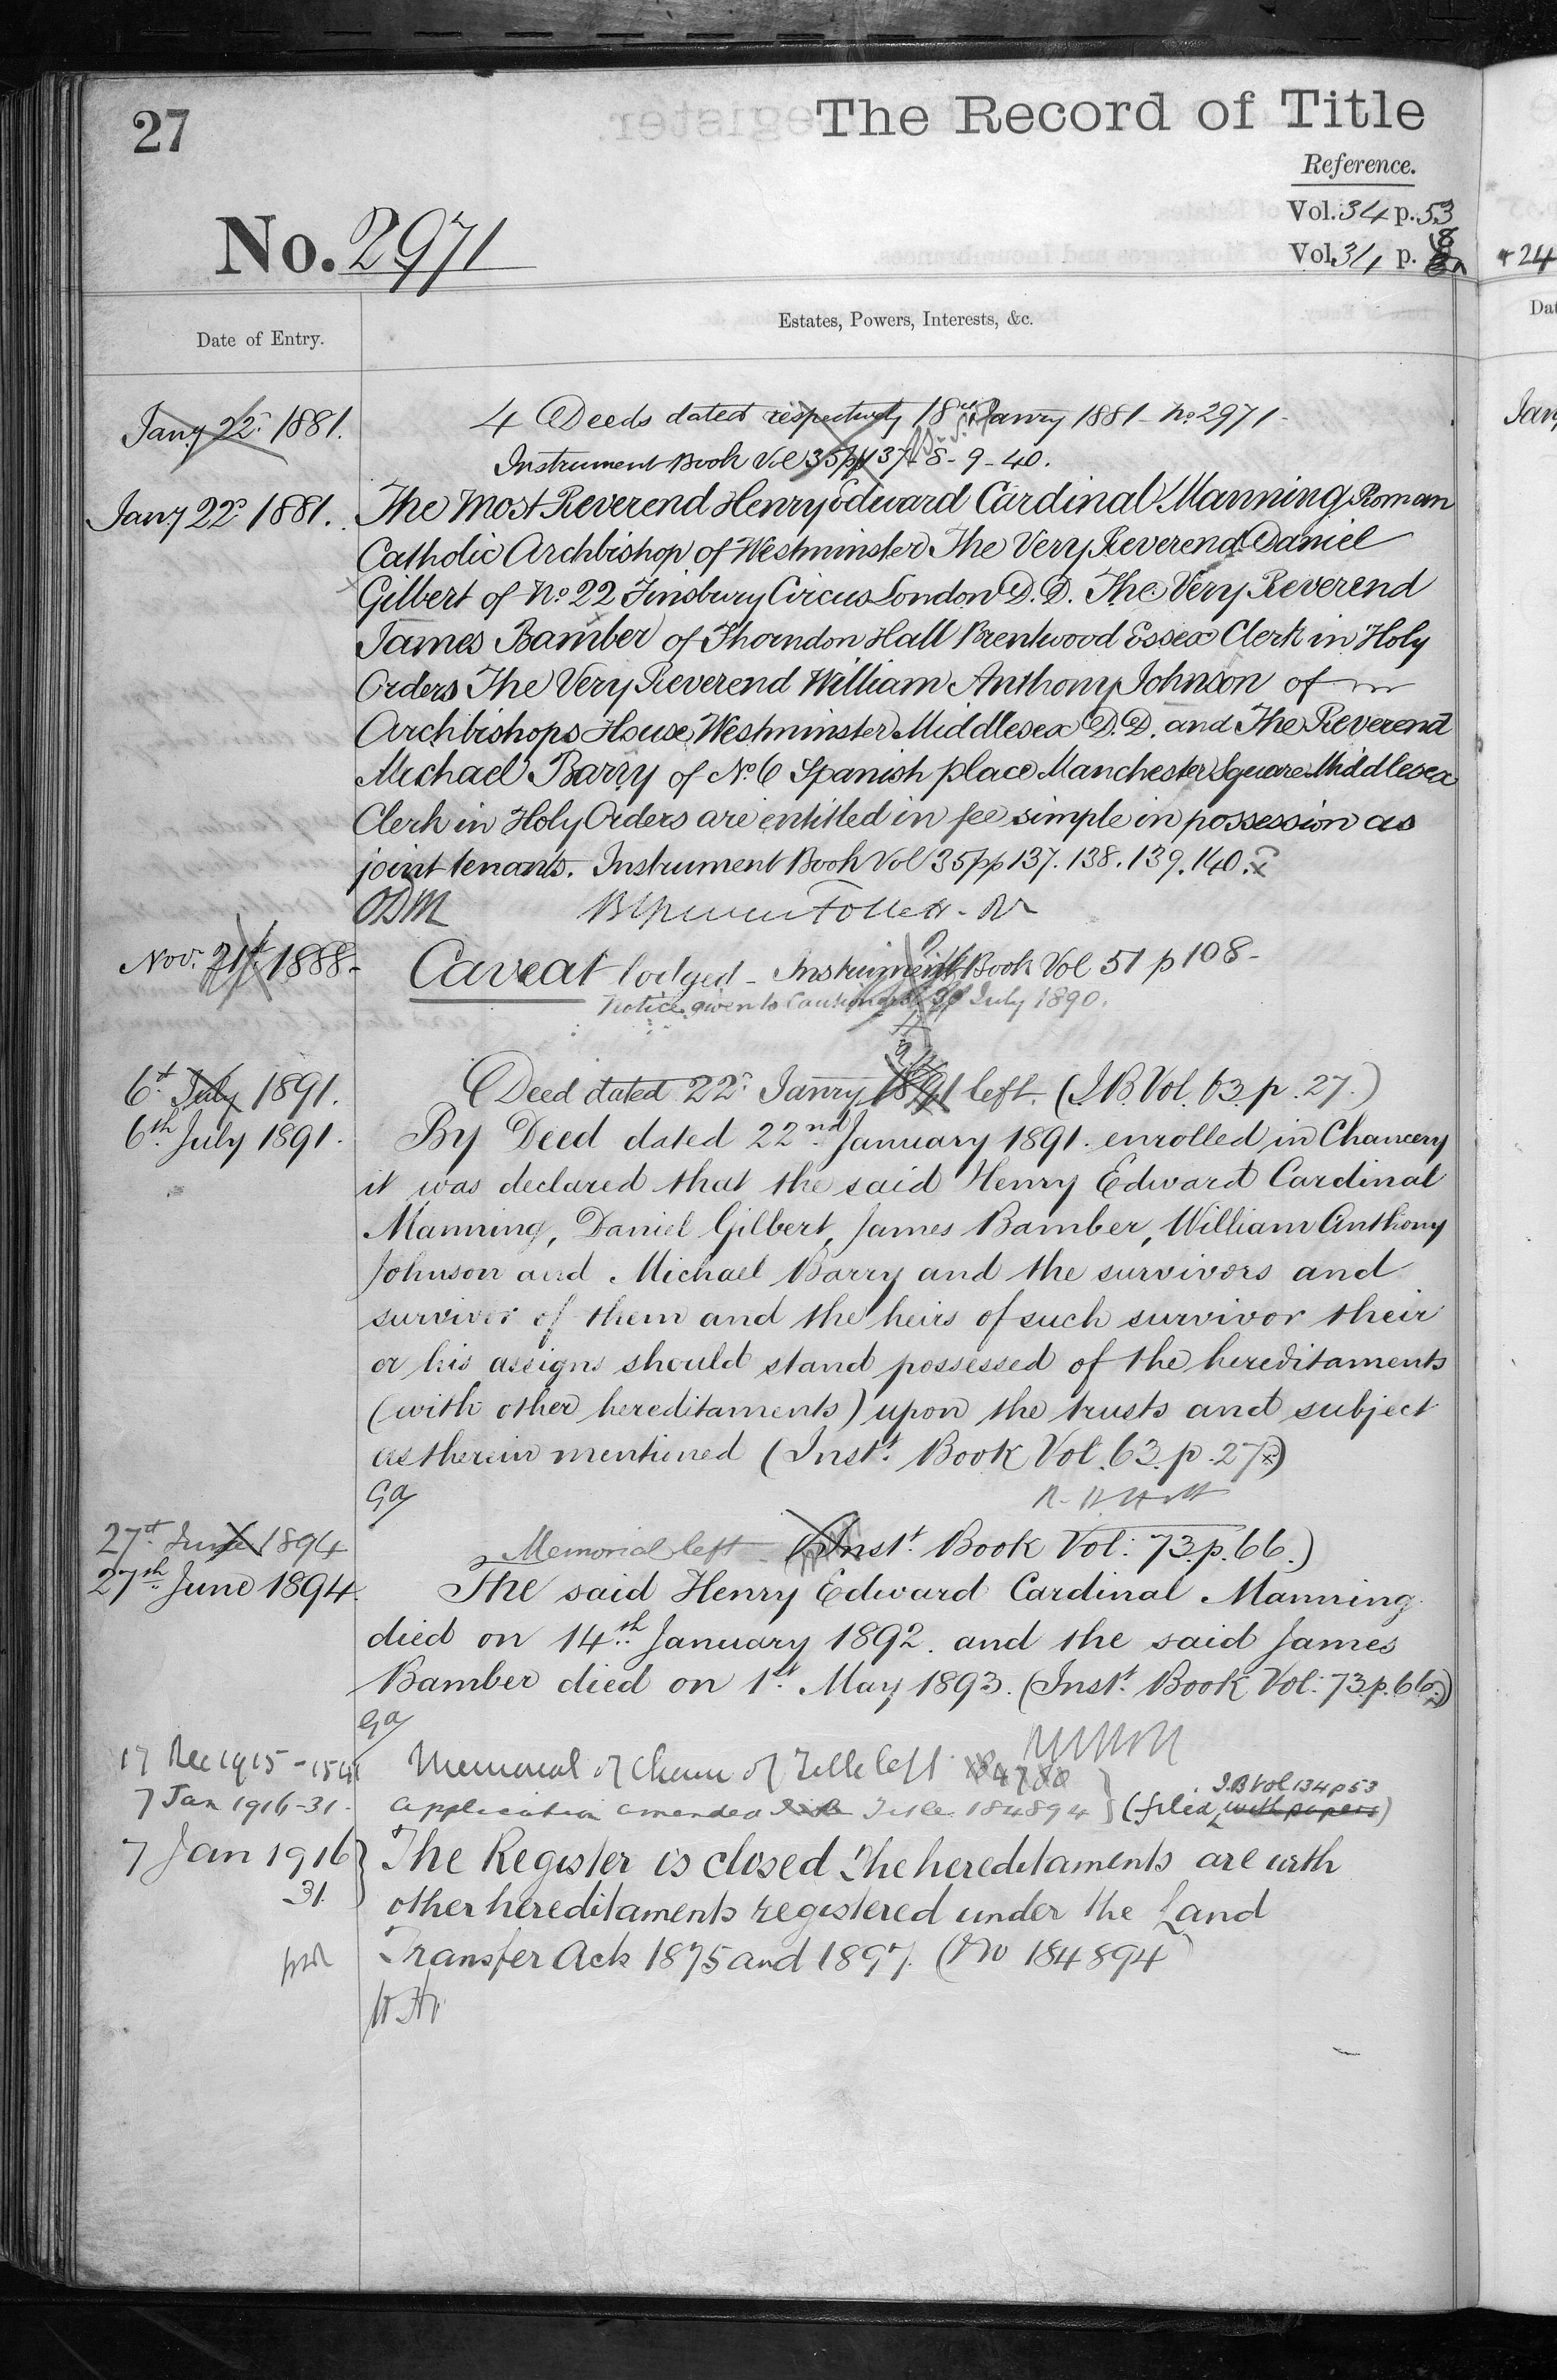 27
The Record of Title
Reference.
Vol. 34 p. 53
Vol. 34 p.
+ 24
No. 2971
Date of Entry.
Estates, Powers, Interests, &c.
Jany 22d 1881.
4 Deeds dated respectively 18th Janry 1881 - No 2971 -
Instrument Book Vol 35 pp 137 - 8 - 9 - 40.
Jany 22d 1881.
The Most Reverend Henry Edward Cardinal Manning Roman
Catholic Archbishop of Westminster The Very Reverend Daniel
Gilbert of No 22 Finsbury Circus London D.D. The Very Reverend
James Bamber of Thorndon Hall Brentwood Essex Clerk in Holy
Orders The Very Reverend William Anthony Johnson of
Archbishops House Westminster Middlesex D.D. and The Reverend
Michael Barry of No. 6 Spanish place Manchester Square Middlesex
Clerk in Holy Orders are entitled in fee simple in possession as
joint tenants. Instrument Book Vol 35 pp 137. 138. 139. 140.
Nov. 21st 1888 -
Caveat lodged - Instrument Book Vol 51 p 108 -
Notice given to Cautioner July 1890.
6th July 1891.
Deed dated 22d Janry 1891 left. (I.B. Vol. 63. p. 27.)
6th July 1891.
By Deed dated 22nd January 1891. enrolled in Chancery
it was declared that the said Henry Edward Cardinal
Manning, Daniel Gilbert, James Bamber, William Anthony
Johnson and Michael Barry and the survivors and
survivor of them and the heirs of such survivor their
or his assigns should stand possessed of the hereditaments
(with other hereditaments) upon the trusts and subject
as therein mentioned (Inst. Book Vol. 63. p. 27)
Ga
27th June 1894
Memorial left (Inst. Book Vol: 73. p. 66.)
27th June 1894.
The said Henry Edward Cardinal Manning
died on 14th January 1892. and the said James
Bamber died on 1st May 1893. (Inst. Book Vol: 73. p. 66.)
Ga
17 Dec 1915 - 154
Memorial of Chain of Title left
7 Jan 1916 - 31.
Application amended Title 184894 } (filed with papers)
I.B Vol 134 p 53
7 Jan 1916
31.
The Register is closed The hereditaments are with
other hereditaments registered under the Land
Transfer Acts 1875 and 1897. (No 184894)